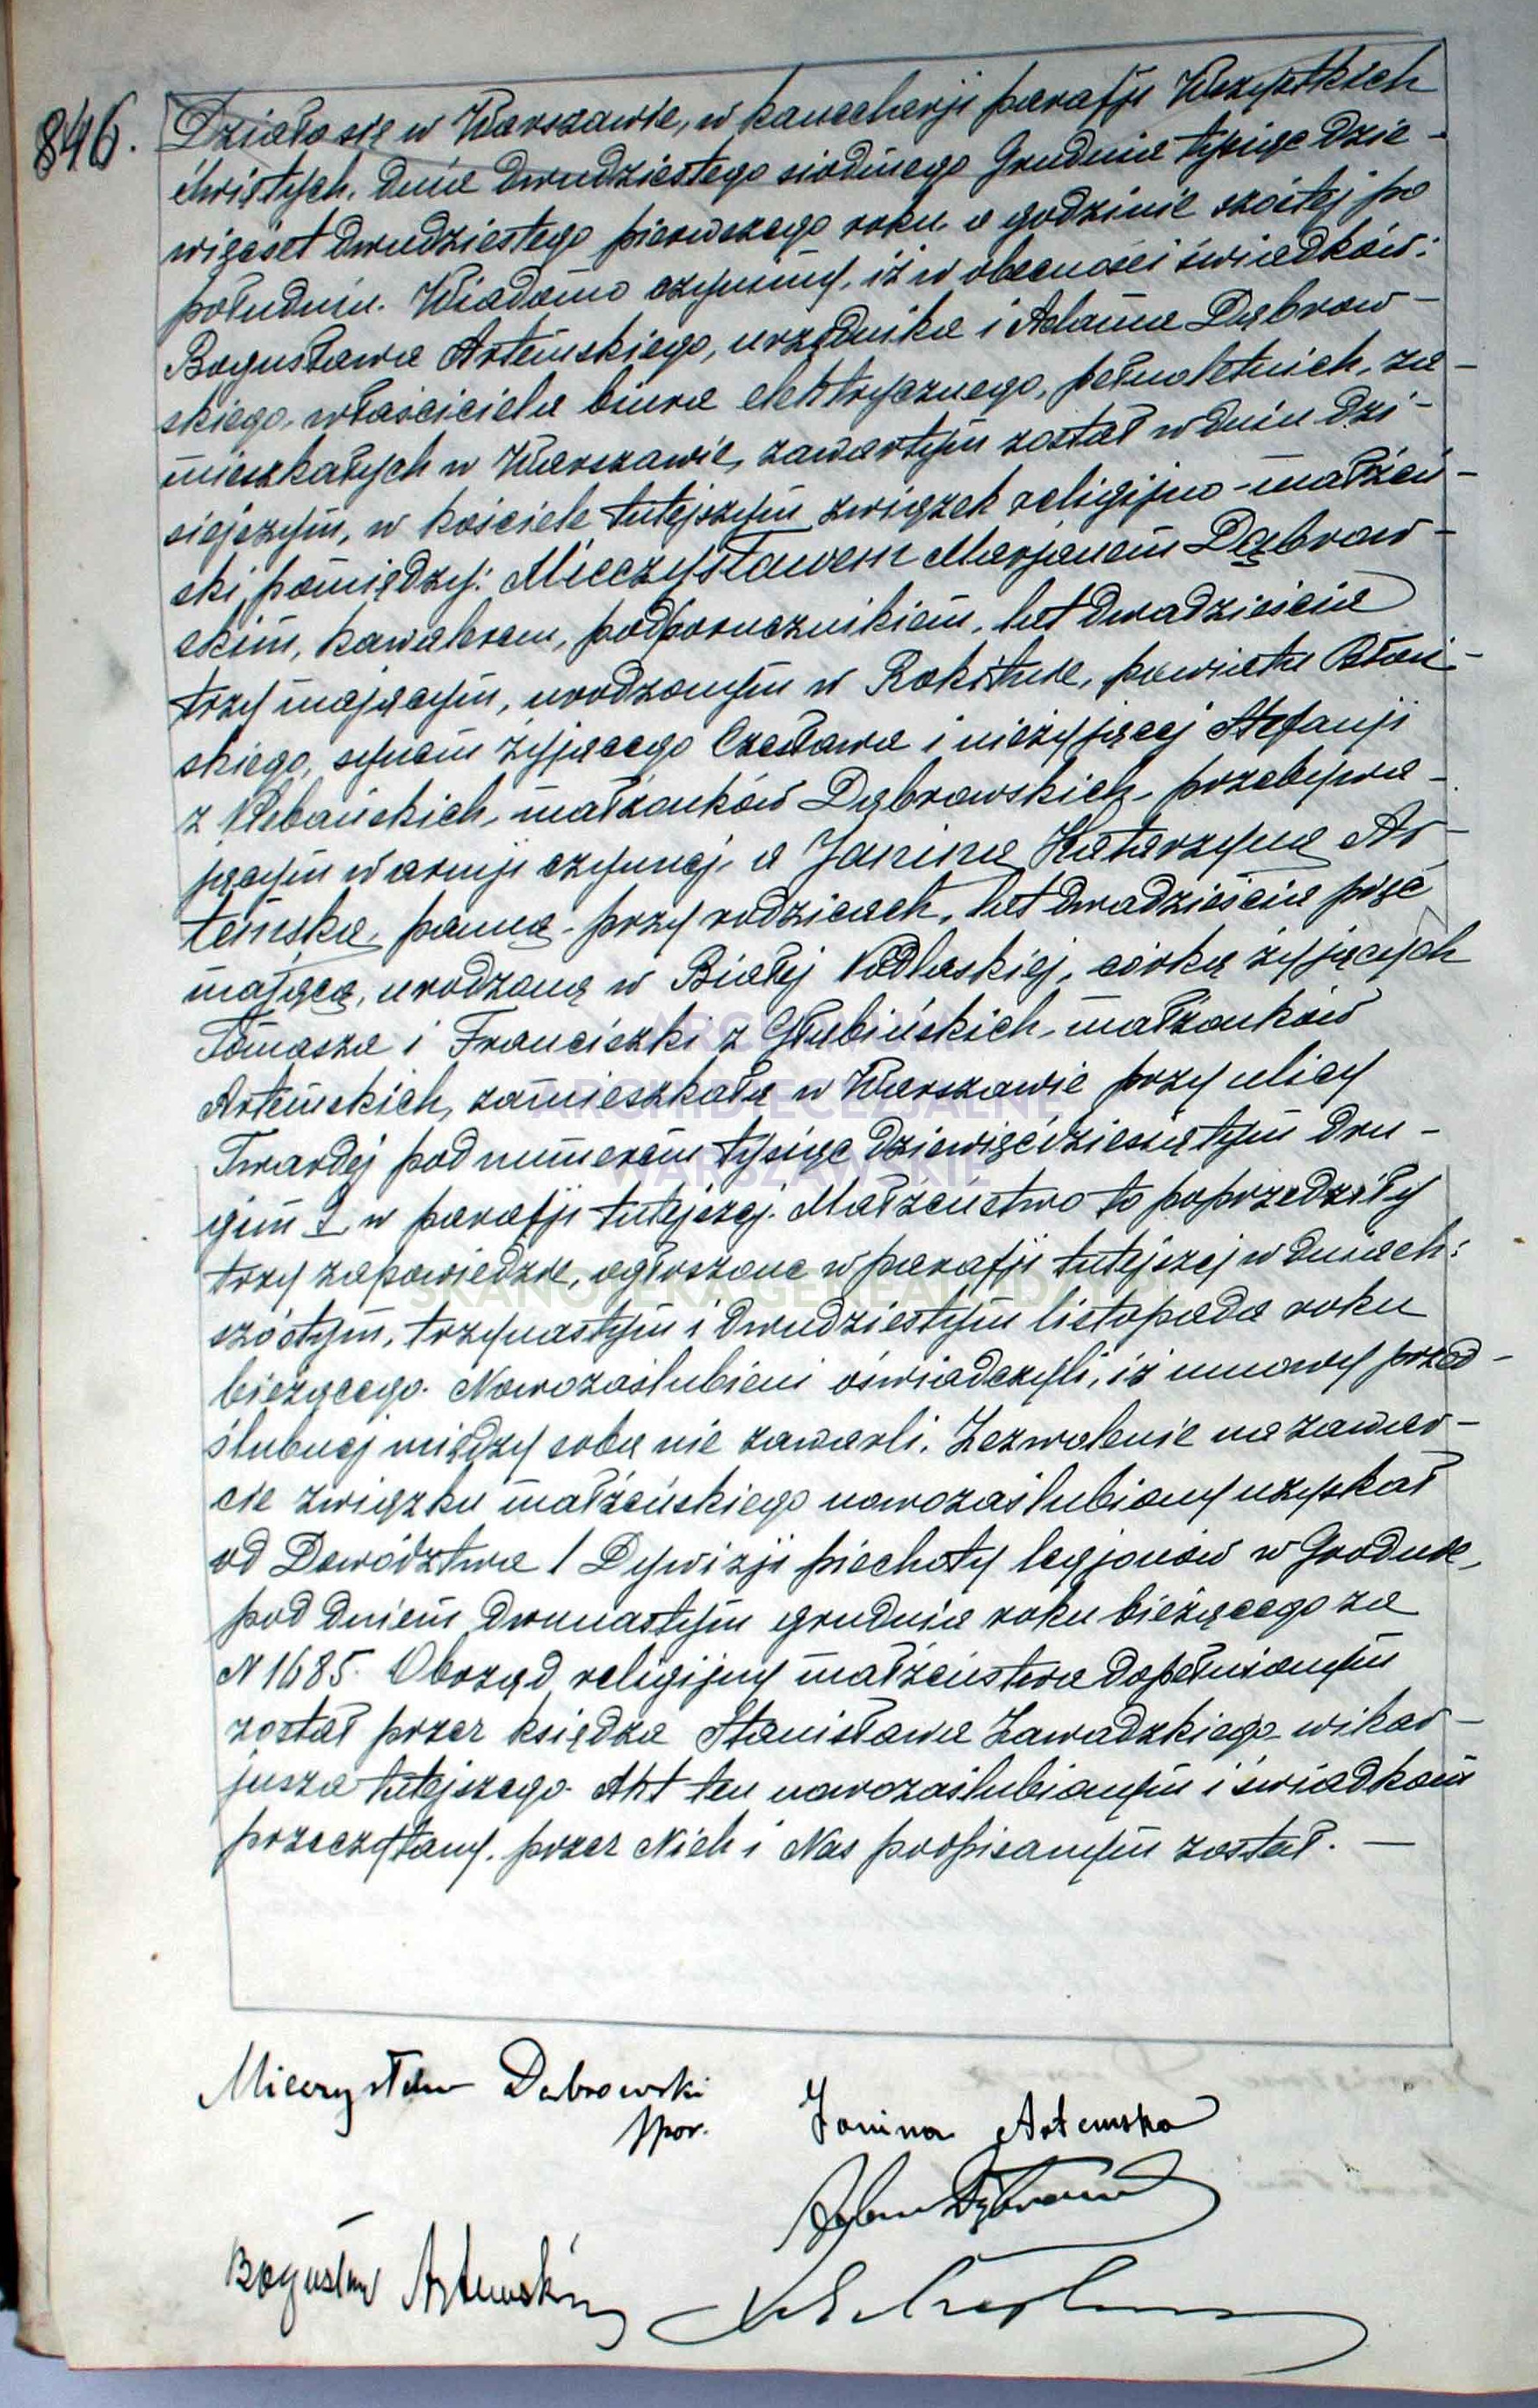 846.
Działo się w Warszawie, w kancelarji parafji Wszystkich
Świętych, dnia dwudziestego siódmego Grudnia tysiąc dzie-
więćset dwudziestego pierwszego roku, o godzinie szóstej po
południu. Wiadomo czynimy, iż w obecności świadków:
Bogusława Artemskiego, urzędnika i Adama Dąbrow-
skiego, właściciela biura elektrycznego, pełnoletnich, za-
mieszkałych w Warszawie, zawartym został w dniu dzi-
siejszym, w kościele tutejszym związek religijno-małżeń-
ski, pomiędzy: Mieczysławem Marjanem Dąbrow-
skim, kawalerem, podporucznikiem, lat dwadzieścia
trzy mającym, urodzonym w Rokitnie, powiatu Błoń-
skiego, synem żyjącego Czesława i nieżyjącej Stefanji
z Plebańskich, małżonków Dąbrowskich, przebywa-
jącym w armji czynnej, a Janiną Katarzyną Ar-
temską, panną, przy rodzicach, lat dwadzieścia pięć
mającą, urodzoną w Białej Podlaskiej, córką żyjących
Tomasza i Franciszki z Głubińskich, małżonków
Artemskich, zamieszkałą w Warszawie przy ulicy
Twardej pod numerem tysiąc dziewięćdziesiątym dru-
gim w parafji tutejszej. Małżeństwo to poprzedziły
trzy zapowiedzie, ogłoszone w parafji tutejszej w dniach:
szóstym, trzynastym i dwudziestym listopada roku
bieżącego. Nowozaślubieni oświadczyli, iż umowy przed-
ślubnej między sobą nie zawarli. Zezwolenie na zawar-
cie związku małżeńskiego nowozaślubiony uzyskał
od Dowództwa 1 Dywizji piechoty legjonów w Grodnie,
pod dniem dwunastym grudnia roku bieżącego za
N 1685. Obrząd religijny małżeństwa dopełnionym
został przez księdza Stanisława Zawadzkiego wikar-
jusza tutejszego. Akt ten nowozaślubionym i świadkom
przeczytany, przez Nich i Nas podpisanym został. —
ARCHIWUM
ARCHIDIECEZJALNE
WARSZAWSKIE
SKANOTEKA GENEALODZY.PL
Mieczysław Dąbrowski
ppor.
Janina Artemska
Adam Dąbrowski
Bogusław Artemski